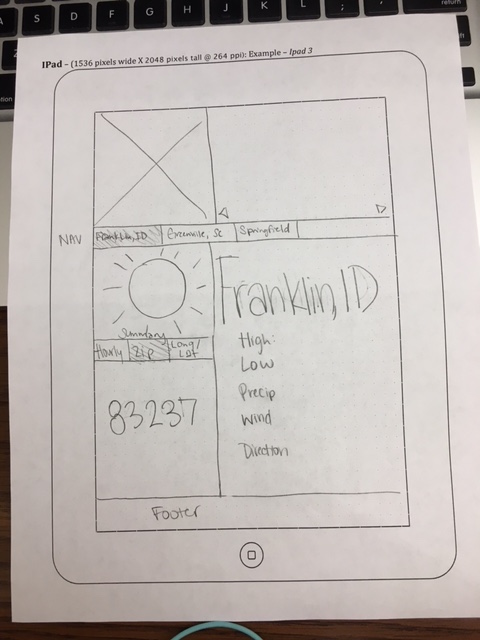 S D F G H J K L ;
return
IPad – (1536 pixels wide X 2048 pixels tall @ 264 ppi): Example – Ipad 3
NAV Franklin, ID Greenville, SC Springfield
Franklin, ID
Summary
Hourly Zip Long/Lat
83237
High:
Low
Precip
Wind
Direction
Footer